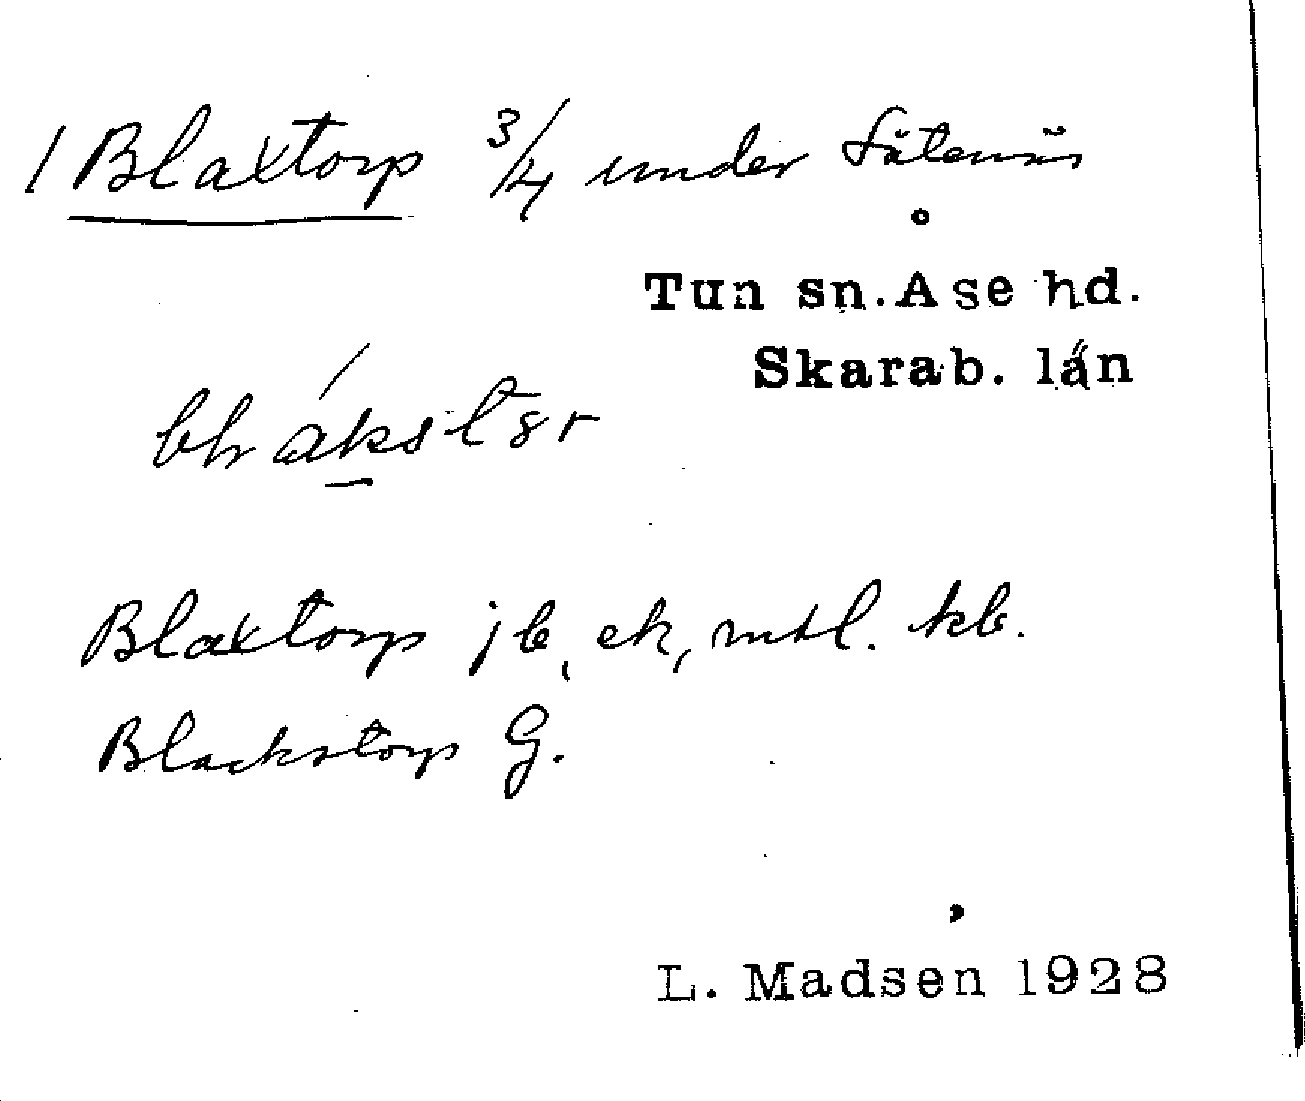 1 Blaxtorp 3/4 under Sätenäs
Tun sn. Åse hd.
Skarab. län
Blaxtorp jb, ek, mtl. kb.
Blackstorp G.
L. Madsen 1928